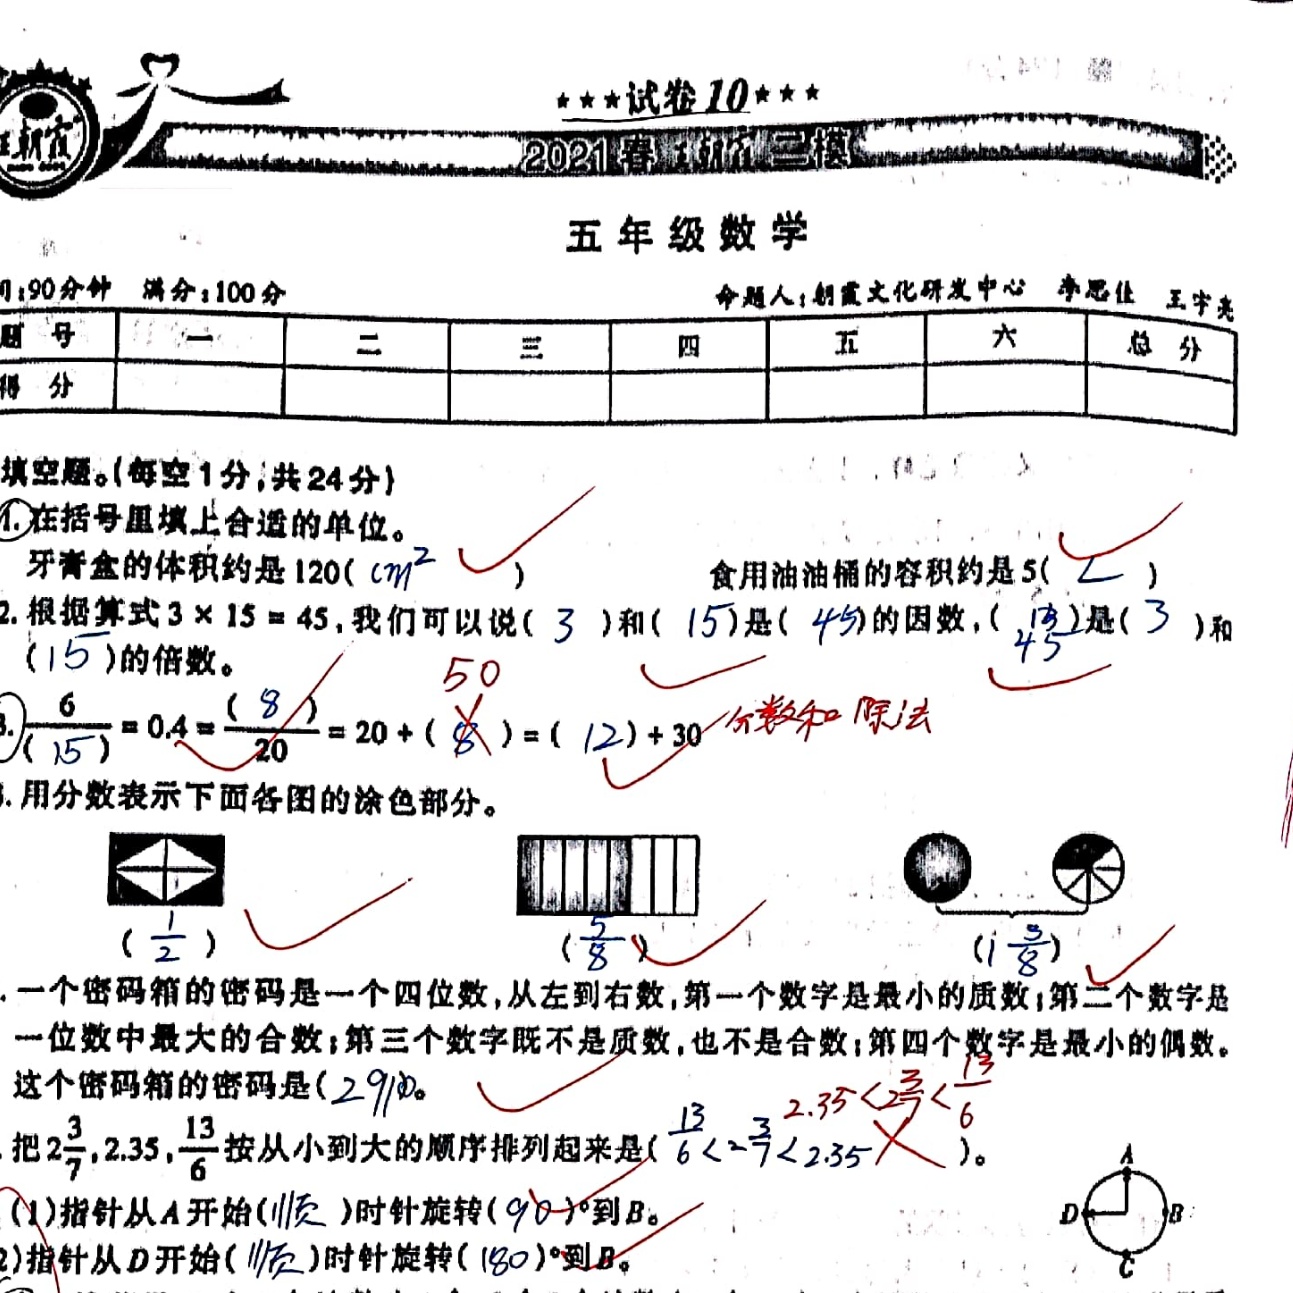 王朝霞
★★★试卷10★★★
2021春 王朝霞 二模
五年级数学
:90分钟 满分:100分 命题人:朝霞文化研发中心 李思佳 王宇亮
题 号 一 二 三 四 五 六 总 分
得 分
填空题。(每空1分,共24分)
1.在括号里填上合适的单位。
牙膏盒的体积约是120( cm² ) 食用油油桶的容积约是5( L )
2.根据算式3×15=45,我们可以说( 3 )和( 15 )是( 45 )的因数,( 45 )是( 3 )和
( 15 )的倍数。
50
3. 6/(15) = 0.4 = (8)/20 = 20+( 8 )=( 12 )+30 分数和除法
.用分数表示下面各图的涂色部分。
( 1/2 ) ( 5/8 ) ( 1 3/8 )
.一个密码箱的密码是一个四位数,从左到右数,第一个数字是最小的质数;第二个数字是
一位数中最大的合数;第三个数字既不是质数,也不是合数;第四个数字是最小的偶数。
这个密码箱的密码是( 2910 )。
2.35<2 3/7<13/6
.把2 3/7,2.35,13/6按从小到大的顺序排列起来是( 13/6<2 3/7<2.35 )。
(1)指针从A开始( 顺 )时针旋转( 90 )°到B。
2)指针从D开始( 顺 )时针旋转( 180 )°到B。
A
D B
C